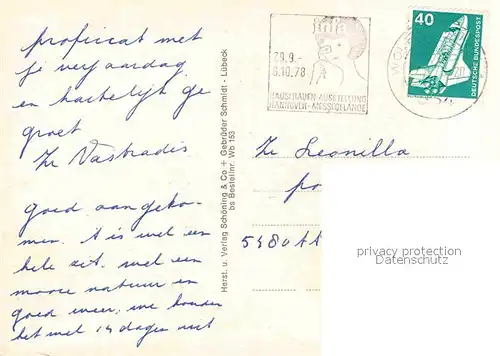 proficiat met
je verjaardag
en hartelijk ge
groet
Zr Vastradis
goed aangeko-
men. 't is wel een
hele zit. wel een
mooie natuur en
goed weer; we houden
het wel 14 dagen uit
Herst. u. Verlag Schöning & Co + Gebrüder Schmidt - Lübeck
bs Bestellnr. Wb 193
infa
29.9.-
8.10.78
HAUSFRAUEN-AUSSTELLUNG
HANNOVER-MESSEGELÄNDE
40
DEUTSCHE BUNDESPOST
Zr Leonilla
po
5480 AA
privacy protection
Datenschutz